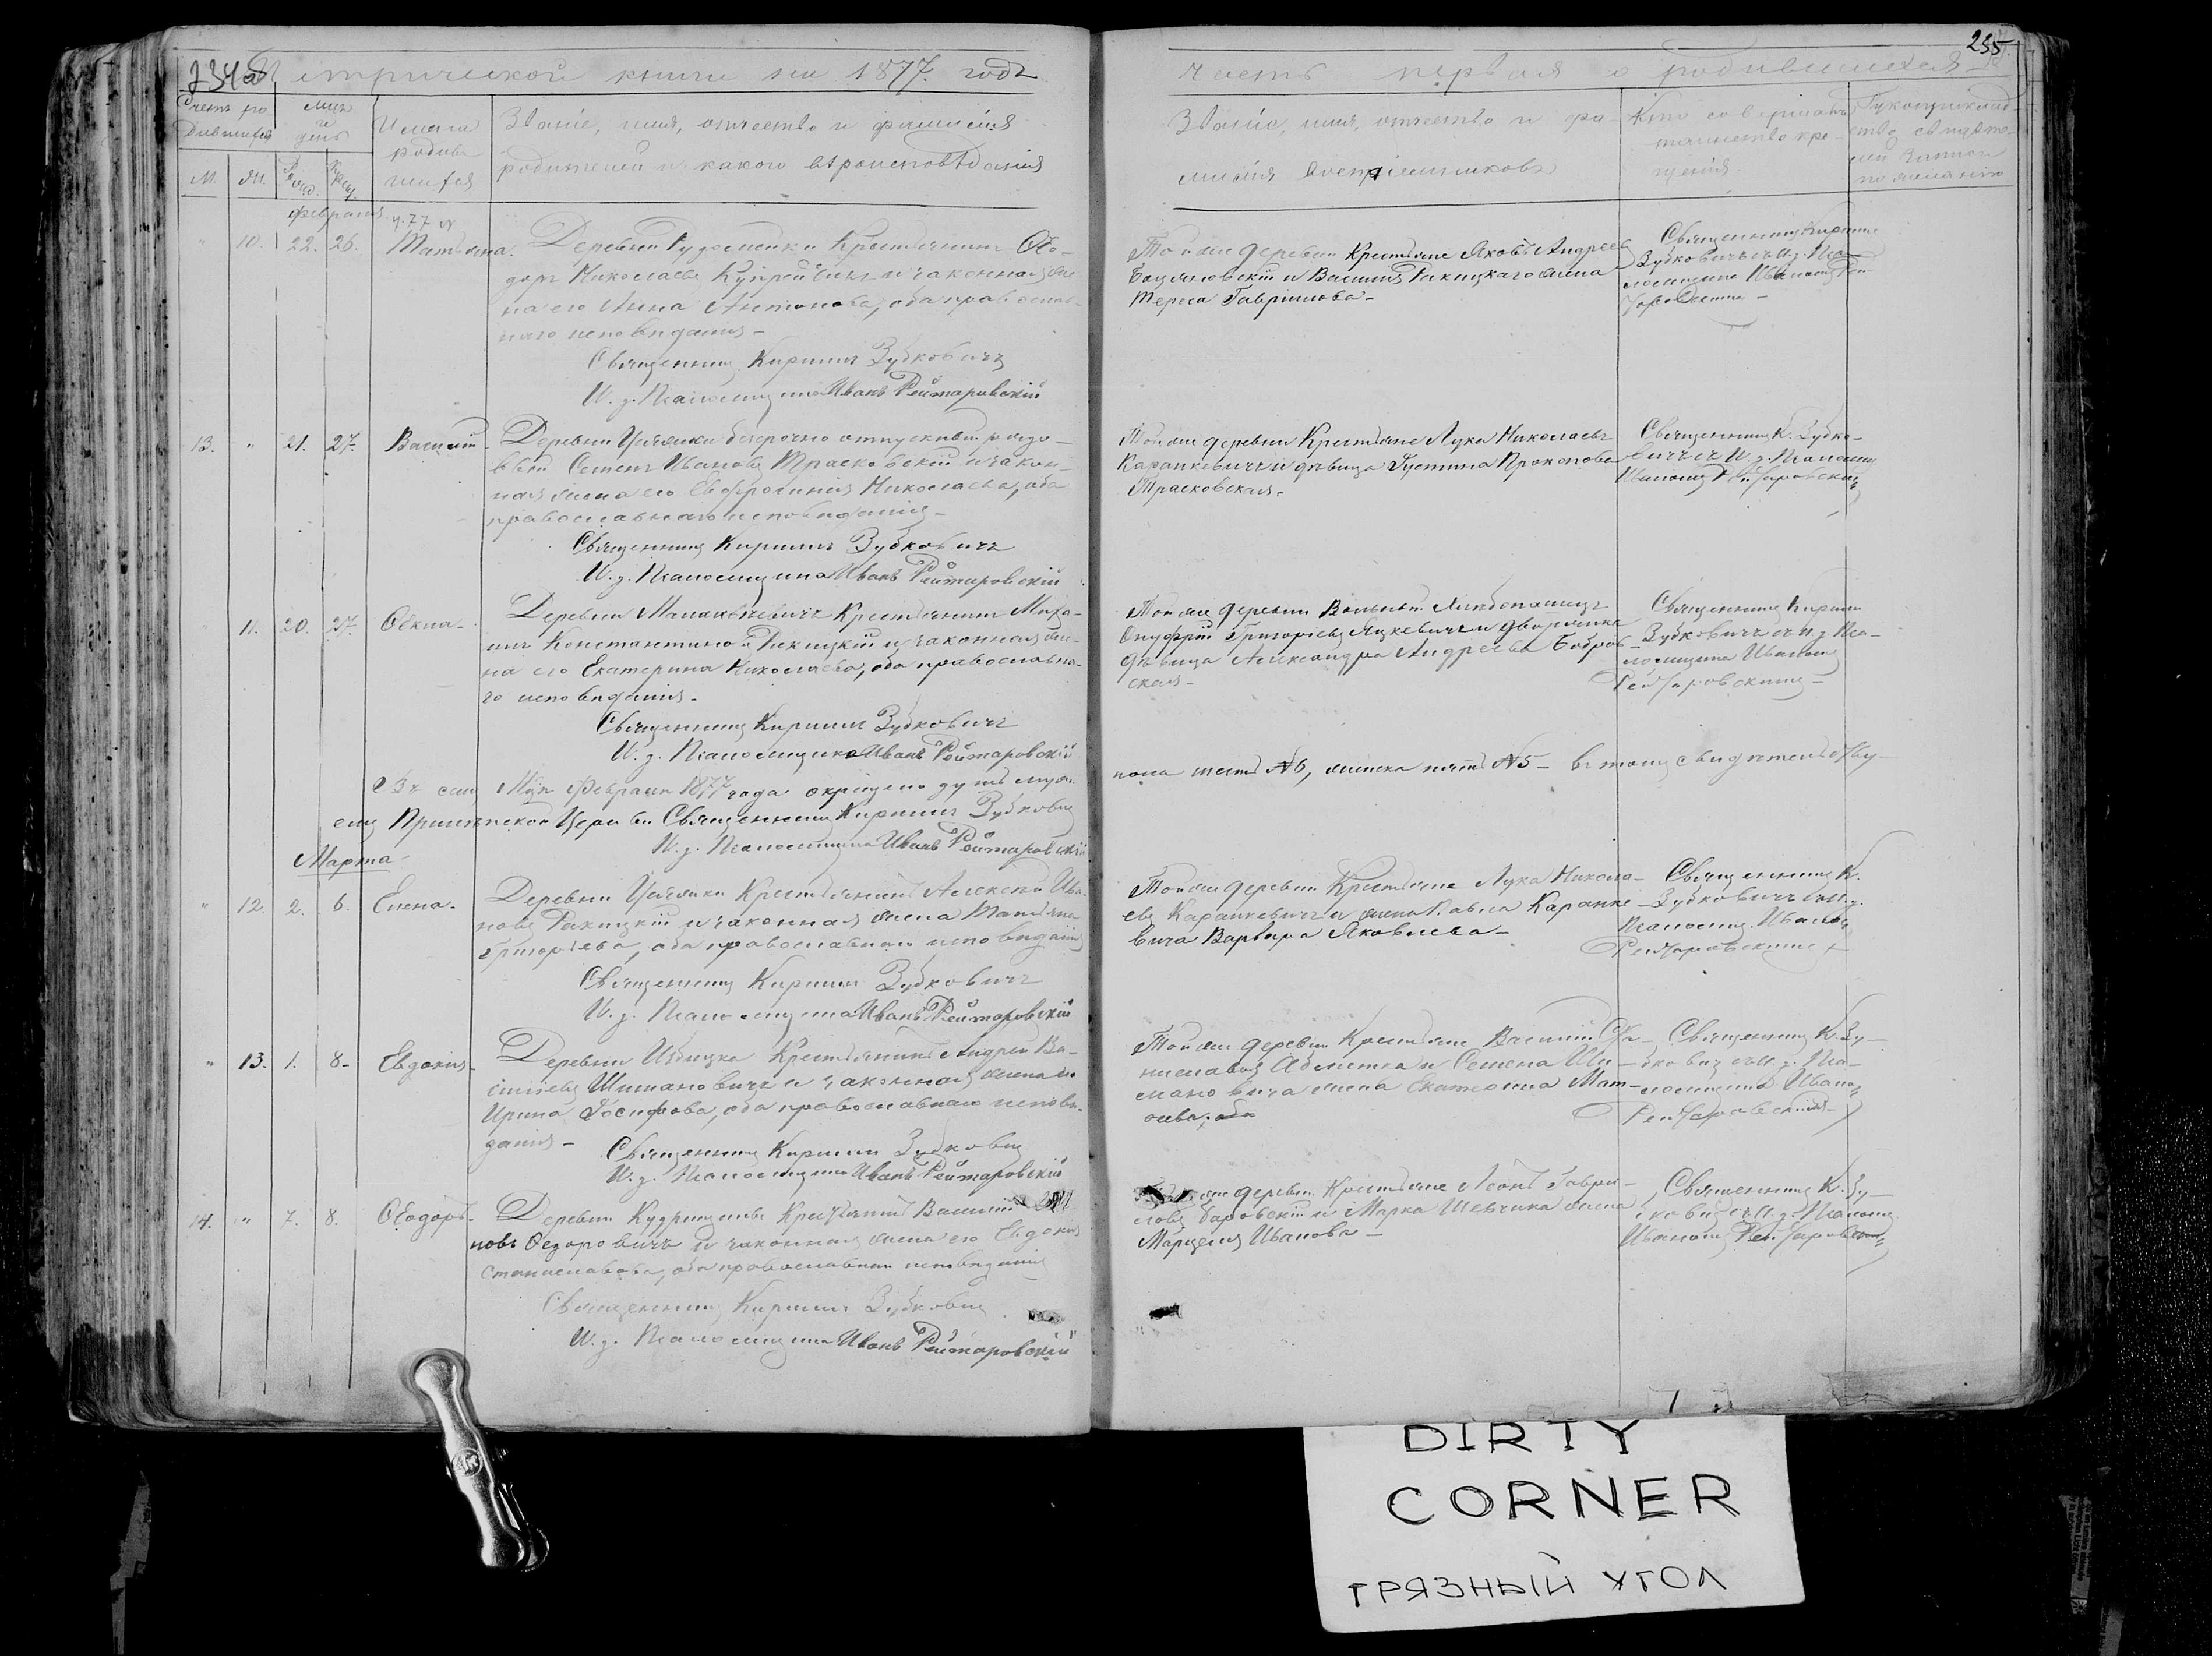 234об
Метрической книги на 1877. годъ
Счетъ ро
дившихся
М-цъ
и
день
Имена
родив
шихся
Званіе, имя, отчество и фамилія
родителей и какого вѣроисповѣданія
М.
Ж.
Рожд.
Крещ.
Февраля
10. 22. 26. Татьяна. Деревни Крестьянинъ Ѳео-
доръ Николаевъ и законная же
на его Анна Антонова, оба православ
наго исповѣданія -
Священникъ Кириллъ Зубковичъ
И. д. Псаломщика Иванъ Рейтаровскій
13. " 21. 27. Василій - Деревни безсрочно отпускной рядо-
вый Семенъ Ивановъ Трасковскій и закон-
ная жена его Евфросинія Николаева, оба
православнаго исповѣданія -
Священникъ Кириллъ Зубковичъ
И. д. Псаломщика Иванъ Рейтаровскій
11. 20. 27. Ѳекла - Деревни Крестьянинъ Миха-
илъ Константиновъ Ракицкій и законная же-
на его Екатерина Николаева, оба православна-
го исповѣданія -
Священникъ Кириллъ Зубковичъ
И. д. Псаломщика Иванъ Рейтаровскій
Въ семъ М-цѣ Февралѣ 1877 года окрещено душъ муж.
ской Церкви Священникъ Кириллъ Зубковичъ
И. д. Псаломщика Иванъ Рейтаровскій
Марта -
" 12. 2. 6. Елена - Деревни Крестьянинъ Алексѣй Ива-
новъ Ракицкій и законная жена Татьяна
Григорьева, оба православнаго исповѣданія
Священникъ Кириллъ Зубковичъ
И. д. Псаломщика Иванъ Рейтаровскій
" 13. 1. 8 - Евдокія - Деревни Избицка Крестьянинъ Андрей Ва-
сильевъ Шимановичъ и законная жена его
Ирина Іосифова, оба православнаго исповѣ-
данія -
Священникъ Кириллъ Зубковичъ
И. д. Псаломщика Иванъ Рейтаровскій
14. " 7. 8. Ѳеодоръ - Деревни Крестьянинъ Василій
новъ Ѳедоровичъ и законная жена его Евдокія
Станиславова, оба православнаго исповѣданія
Священникъ Кириллъ Зубковичъ
И. д. Псаломщика Иванъ Рейтаровскій
235
часть первая о родившихся
Званіе, имя, отчество и фа-
милія воспріемниковъ
Кто совершалъ
таинство кре-
щенія
Рукоприклад-
ство свидѣте-
лей записи
по желанію
Той же деревни Крестьяне Яковъ Андреевъ
и Василія Ракицкаго жена
Тереса Гаврилова -
Священникъ Кириллъ
Зубковичъ съ и. д. Пса-
ломщика Иваномъ Рей
Той же деревни Крестьяне Лука Николаевъ
Каранкевичъ и дѣвица Іустина Прокопова
Трасковская -
Священникъ К. Зубко-
вичъ съ И. д. Псаломщ.
Иваномъ Рейтаровскимъ
Той же деревни
Онуфрій Григорьевъ Яцкевичъ и дворянка
дѣвица Александра Андреева Бобров-
ская -
Священникъ Кириллъ
Зубковичъ съ и. д. Пса-
ломщика Иваномъ
Рейтаровскимъ -
пола шесть №6, женска пять №5 - въ томъ свидѣтельству-
Той же деревни Крестьяне Лука Никола-
евъ Каранкевичъ и жена Павла Каранке-
вича Варвара Яковлева -
Священникъ К.
Зубковичъ съ И. д.
Псаломщ. Иваномъ
Рейтаровскимъ
Той же деревни Крестьяне Василій Ста-
ниславовъ и Семена Ши-
мановича жена Екатерина Мат-
оба
Священникъ К. Зу-
бковичъ съ И. д. Пса-
ломщика Иваномъ
Рейтаровскимъ -
же деревни Крестьяне Леонъ Гаври-
ловъ Баровскій и Марка Шевчика жена
Марцеля Иванова -
Священникъ К. Зу-
бковичъ съ И. д. Псаломщ.
Иваномъ Рейтаровскимъ
DIRTY
CORNER
ГРЯЗНЫЙ УГОЛ